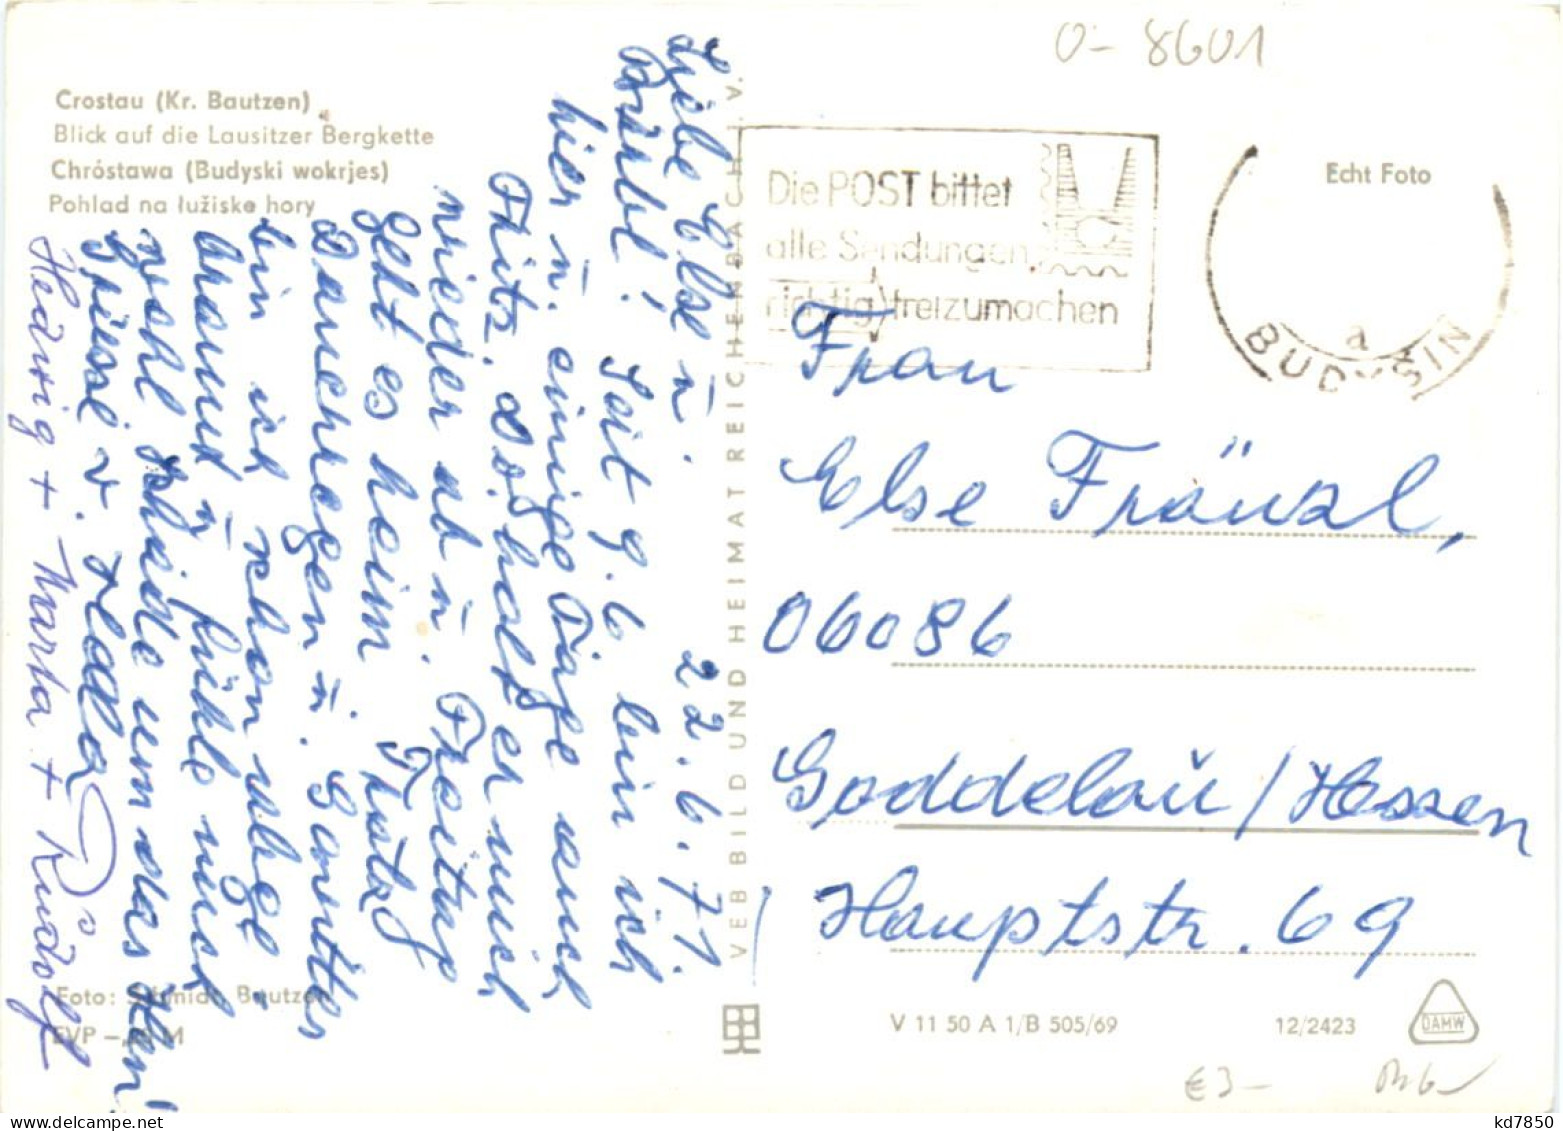 0-8601
Crostau (Kr. Bautzen)
Blick auf die Lausitzer Bergkette
Chróstawa (Budyski wokrjes)
Pohlad na łužiske hory
Liebe Else ü.
Bärbl! 22.6.71.
Seit 9.6 bin ich
hier ü. einige Tage auch
Fritz. So holt er mich
wieder ab ü. Freitag
geht es heim. Trotz
Dauerregen ü. Gewitter
bin ich schon
braun ü. fühle mich
wohl um das
Grüsse v.
Hedwig + Marta + Rudolf
Foto: Schmidt, Bautzen
EVP
VEB BILD UND HEIMAT REICHENBACH I. V.
Die POST bittet
alle Sendungen
richtig freizumachen
BUDYŠIN
a
Echt Foto
Frau
Else Fränzl,
06086
Goddelaü/Hessen
Hauptstr. 69
V 11 50 A 1/B 505/69
12/2423
DAMW
€3-
kd7850